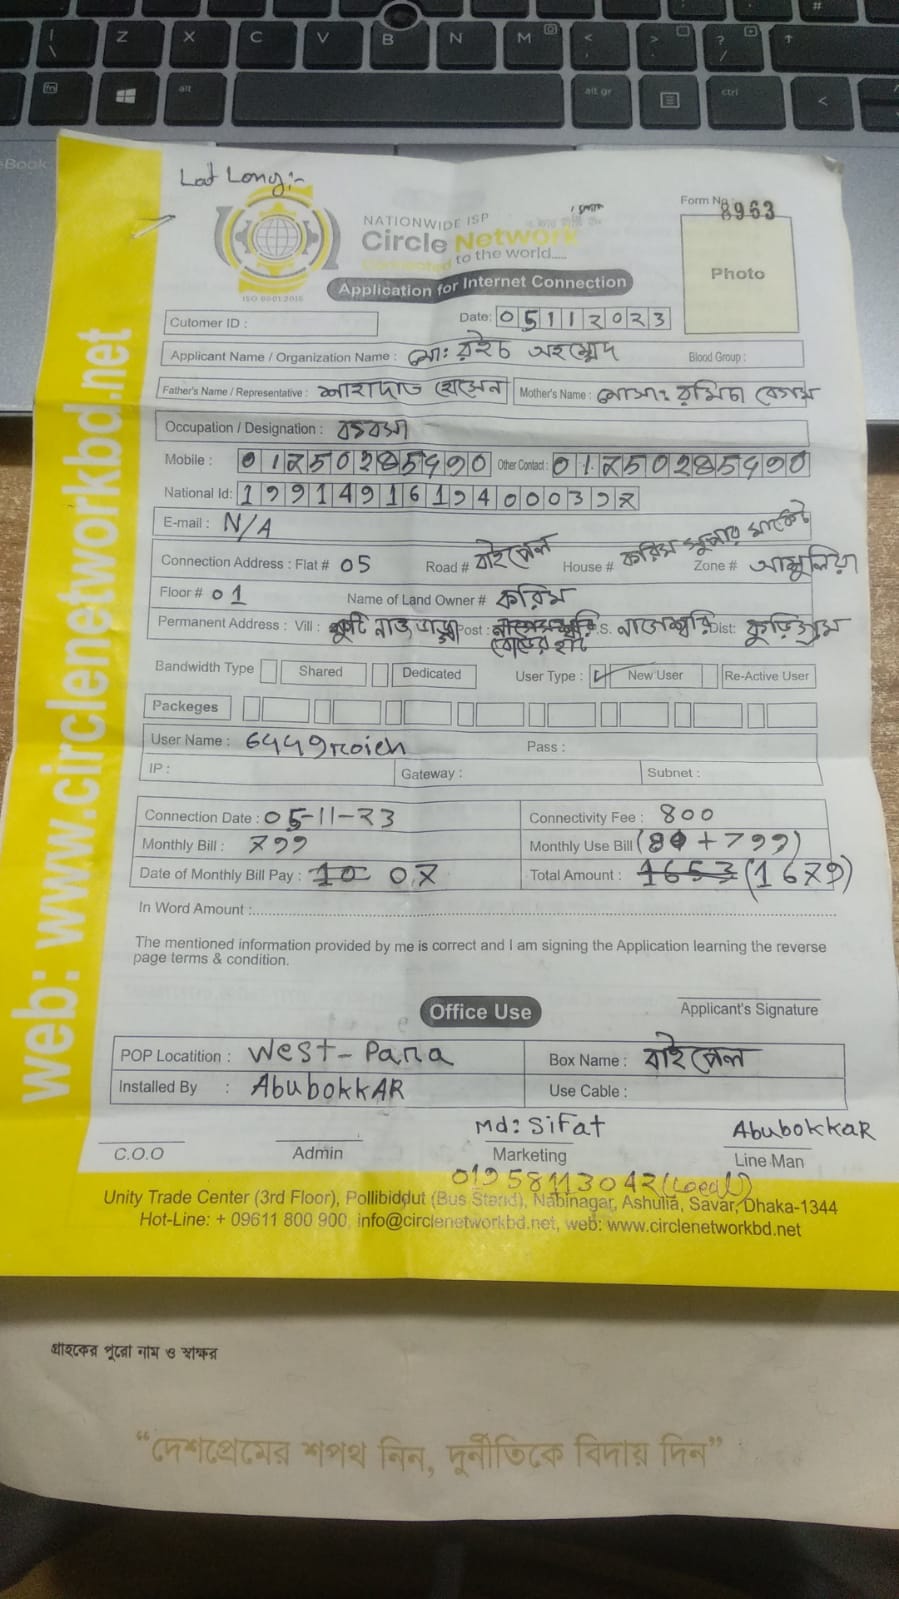 Lat Long:-
Form No: 8963
NATIONWIDE ISP
Circle Network
Connected to the world.....
ISO 9001:2015
Photo
Application for Internet Connection
Date: 05112023
Cutomer ID :
Applicant Name / Organization Name : মো: রইচ অহম্মেদ Blood Group :
Father's Name / Representative : শাহাদাত হোসেন Mother's Name : মোসা: রমিচা বেগম
Occupation / Designation : ব্যবসা
Mobile : Other Contact :
National Id:
E-mail : N/A
Connection Address : Flat # 05 Road # বাইপেল House # করিম সুপার মার্কেট Zone # আশুলিয়া
Floor # 01 Name of Land Owner # করিম
Permanent Address : Vill : Post : P.S. Dist: কুড়িগ্রাম
Bandwidth Type Shared Dedicated User Type : ✓ New User Re-Active User
Packeges
User Name : Pass :
IP : Gateway : Subnet :
Connection Date : 05-11-23 Connectivity Fee : 800
Monthly Bill : 799 Monthly Use Bill (80+799)
Date of Monthly Bill Pay : 10 07 Total Amount : 1653 (1679)
In Word Amount :
The mentioned information provided by me is correct and I am signing the Application learning the reverse
page terms & condition.
Applicant's Signature
Office Use
POP Locatition : West-Para Box Name : বাইপেল
Installed By : AbubokkAR Use Cable :
Md: Sifat AbubokkaR
C.O.O Admin Marketing Line Man
01958113042 (Local)
Unity Trade Center (3rd Floor), Pollibiddut (Bus Stand), Nabinagar, Ashulia, Savar, Dhaka-1344
Hot-Line: + 09611 800 900, info@circlenetworkbd.net, web: www.circlenetworkbd.net
web: www.circlenetworkbd.net
গ্রাহকের পুরো নাম ও স্বাক্ষর
“দেশপ্রেমের শপথ নিন, দুর্নীতিকে বিদায় দিন”